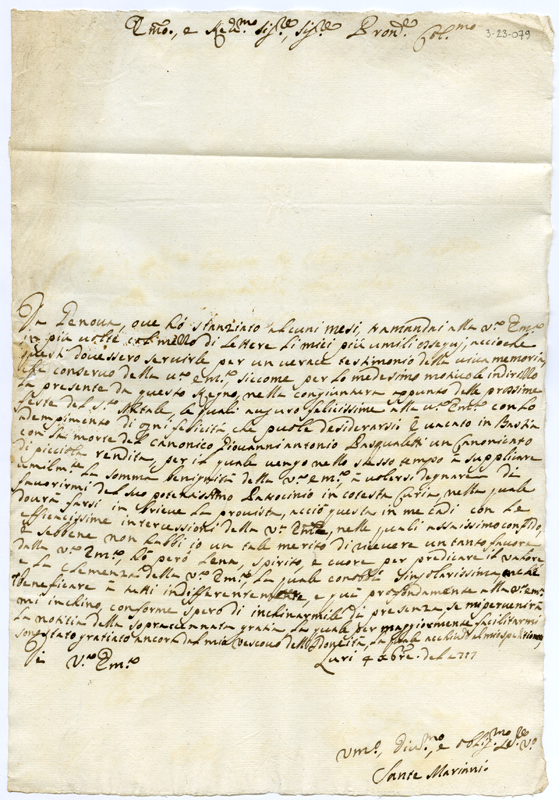 Emo., e Rmo Sigre, Sigre Prone Colmo
3-23-079
Da Genova, ove hò stanziato alcuni mesi, tramandai alla Va Emza
in più volte col mezzo di lettere li miei più umili ossequj, acciochè
questi dovessero servirle per un verace testimonio della viva memoria,
che conservo della Va Emza, siccome per lo medesimo motivo le indirizzo
la presente da questo Regno, nella congiuntura appunto delle prossime
feste del Sto Natale, le quali auguro felicissime alla Va Emza con lo
adempimento di ogni felicità che puole desiderarsi. È vacato in Bastia
con la morte del canonico Giovanni Antonio Pasqualetti un Canonicato
di picciola rendita, per il quale vengo nello stesso tempo à supplicare
umilmte la somma benignità della Va Emza à volersi degnare di
favorirmi del suo potentissimo Patrocinio in cotesta Curia, nella quale
dovrà farsi in brieve la provista, acciò questa in me cadi con le
efficacissime intercessioni della Va Emza, nelle quali assaissimo confido,
e sebbene non habbi io un tale merito di ricevere un tanto favore
dalla Va Emza, hò però lena, spirito, e cuore per predicare il valore
e la clemenza della Va Emza, la quale conobbi singolarissima
beneficare à tutti indifferentemente, e quì profondamente alla Va Emza
mi inchino, conforme spero di inchinarmile di presenza, se mi perverrà
la notizia della sopraccennata grazia, la quale per maggiormente facilitarmi
sono stato graziato ancora dal mio vescovo
Di Va Emza
Luri 4 Xbre
Umo, Divmo, e obligmo Sere Vo
Sante Marinnio